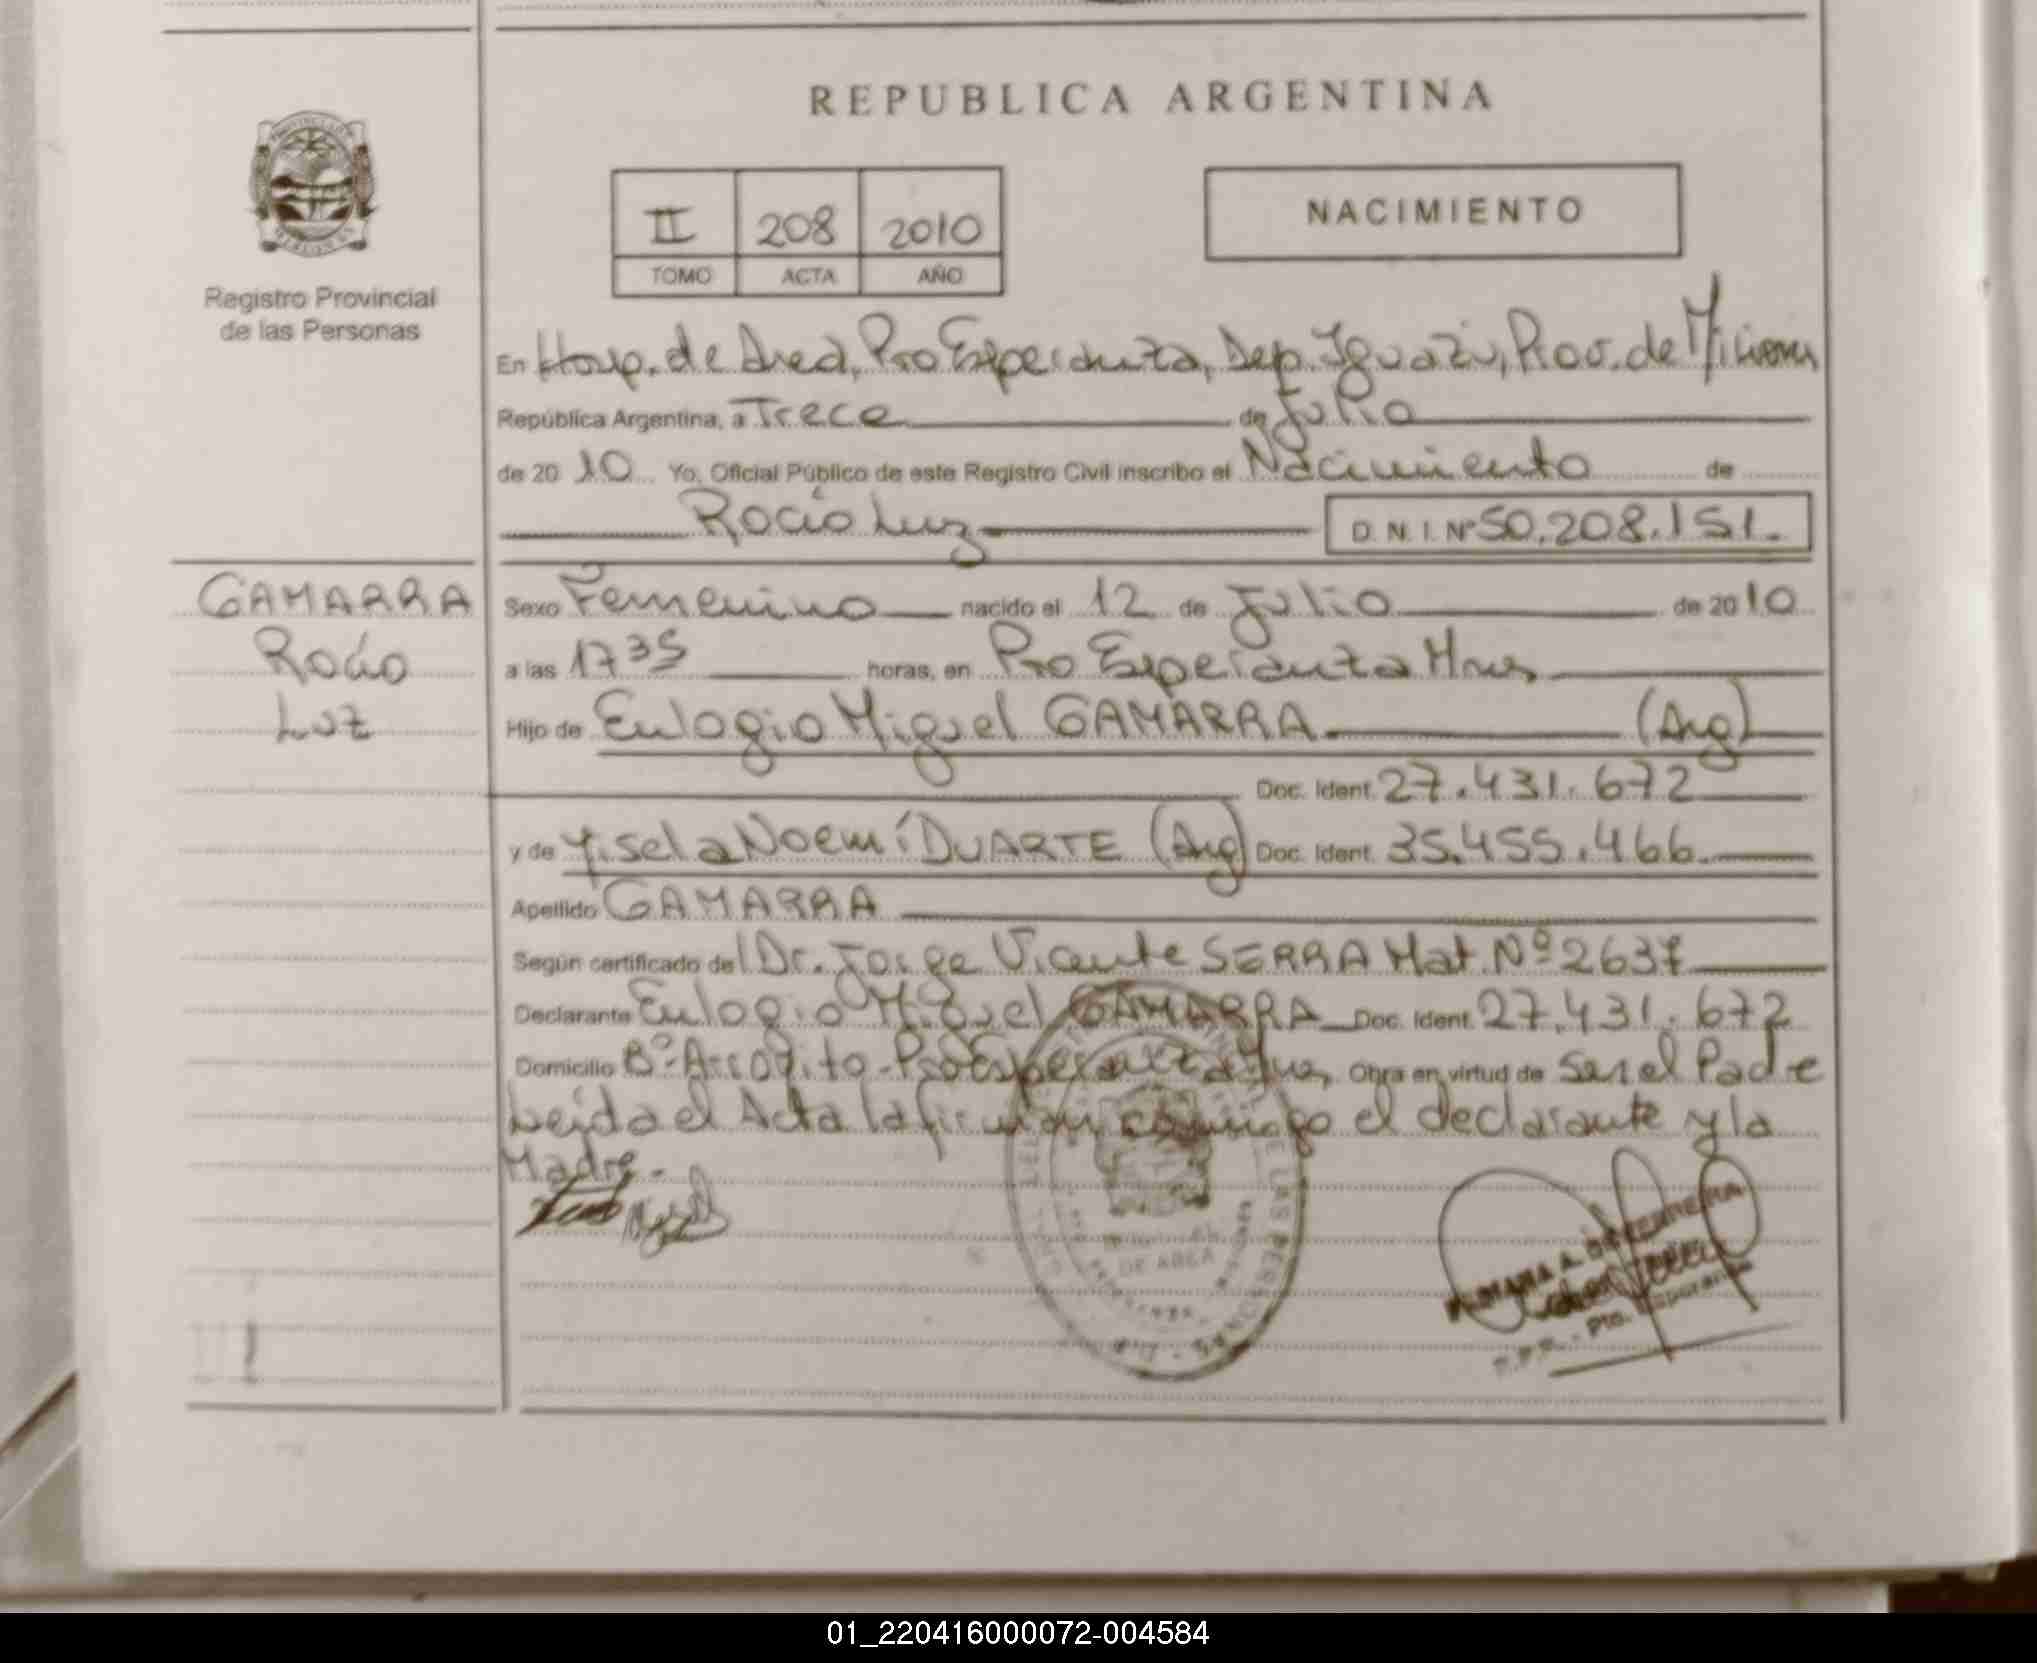 REPUBLICA ARGENTINA
II 208 2010
TOMO ACTA AÑO
NACIMIENTO
Registro Provincial
de las Personas
En Hosp. de Area, Pto Esperanza, Dep. Iguazú, Prov. de Misiones
República Argentina, a Trece de Julio
de 20 10 Yo, Oficial Público de este Registro Civil inscribo el Nacimiento de
Rocío Luz D. N. I. Nº 50.208.151.
GAMARRA
Rocío
Luz
Sexo Femenino nacido el 12 de Julio de 2010
a las 17 35 horas, en Pto Esperanza Mnes
Hijo de Eulogio Miguel GAMARRA. (Arg)
Doc. Ident. 27.431.672
y de Yisela Noemí DUARTE (Arg) Doc. Ident. 35.455.466.
Apellido GAMARRA
Según certificado del Dr. Jorge Vicente SERRA Mat. Nº 2637
Declarante Eulogio Miguel GAMARRA Doc. Ident. 27.431.672
Domicilio Bº Arroyito - Pto Esperanza Mnes, Obra en virtud de Ser el Padre
Leída el Acta la firman conmigo el declarante y la
Madre.
DE AREA
Pto. Esperanza
01_220416000072-004584